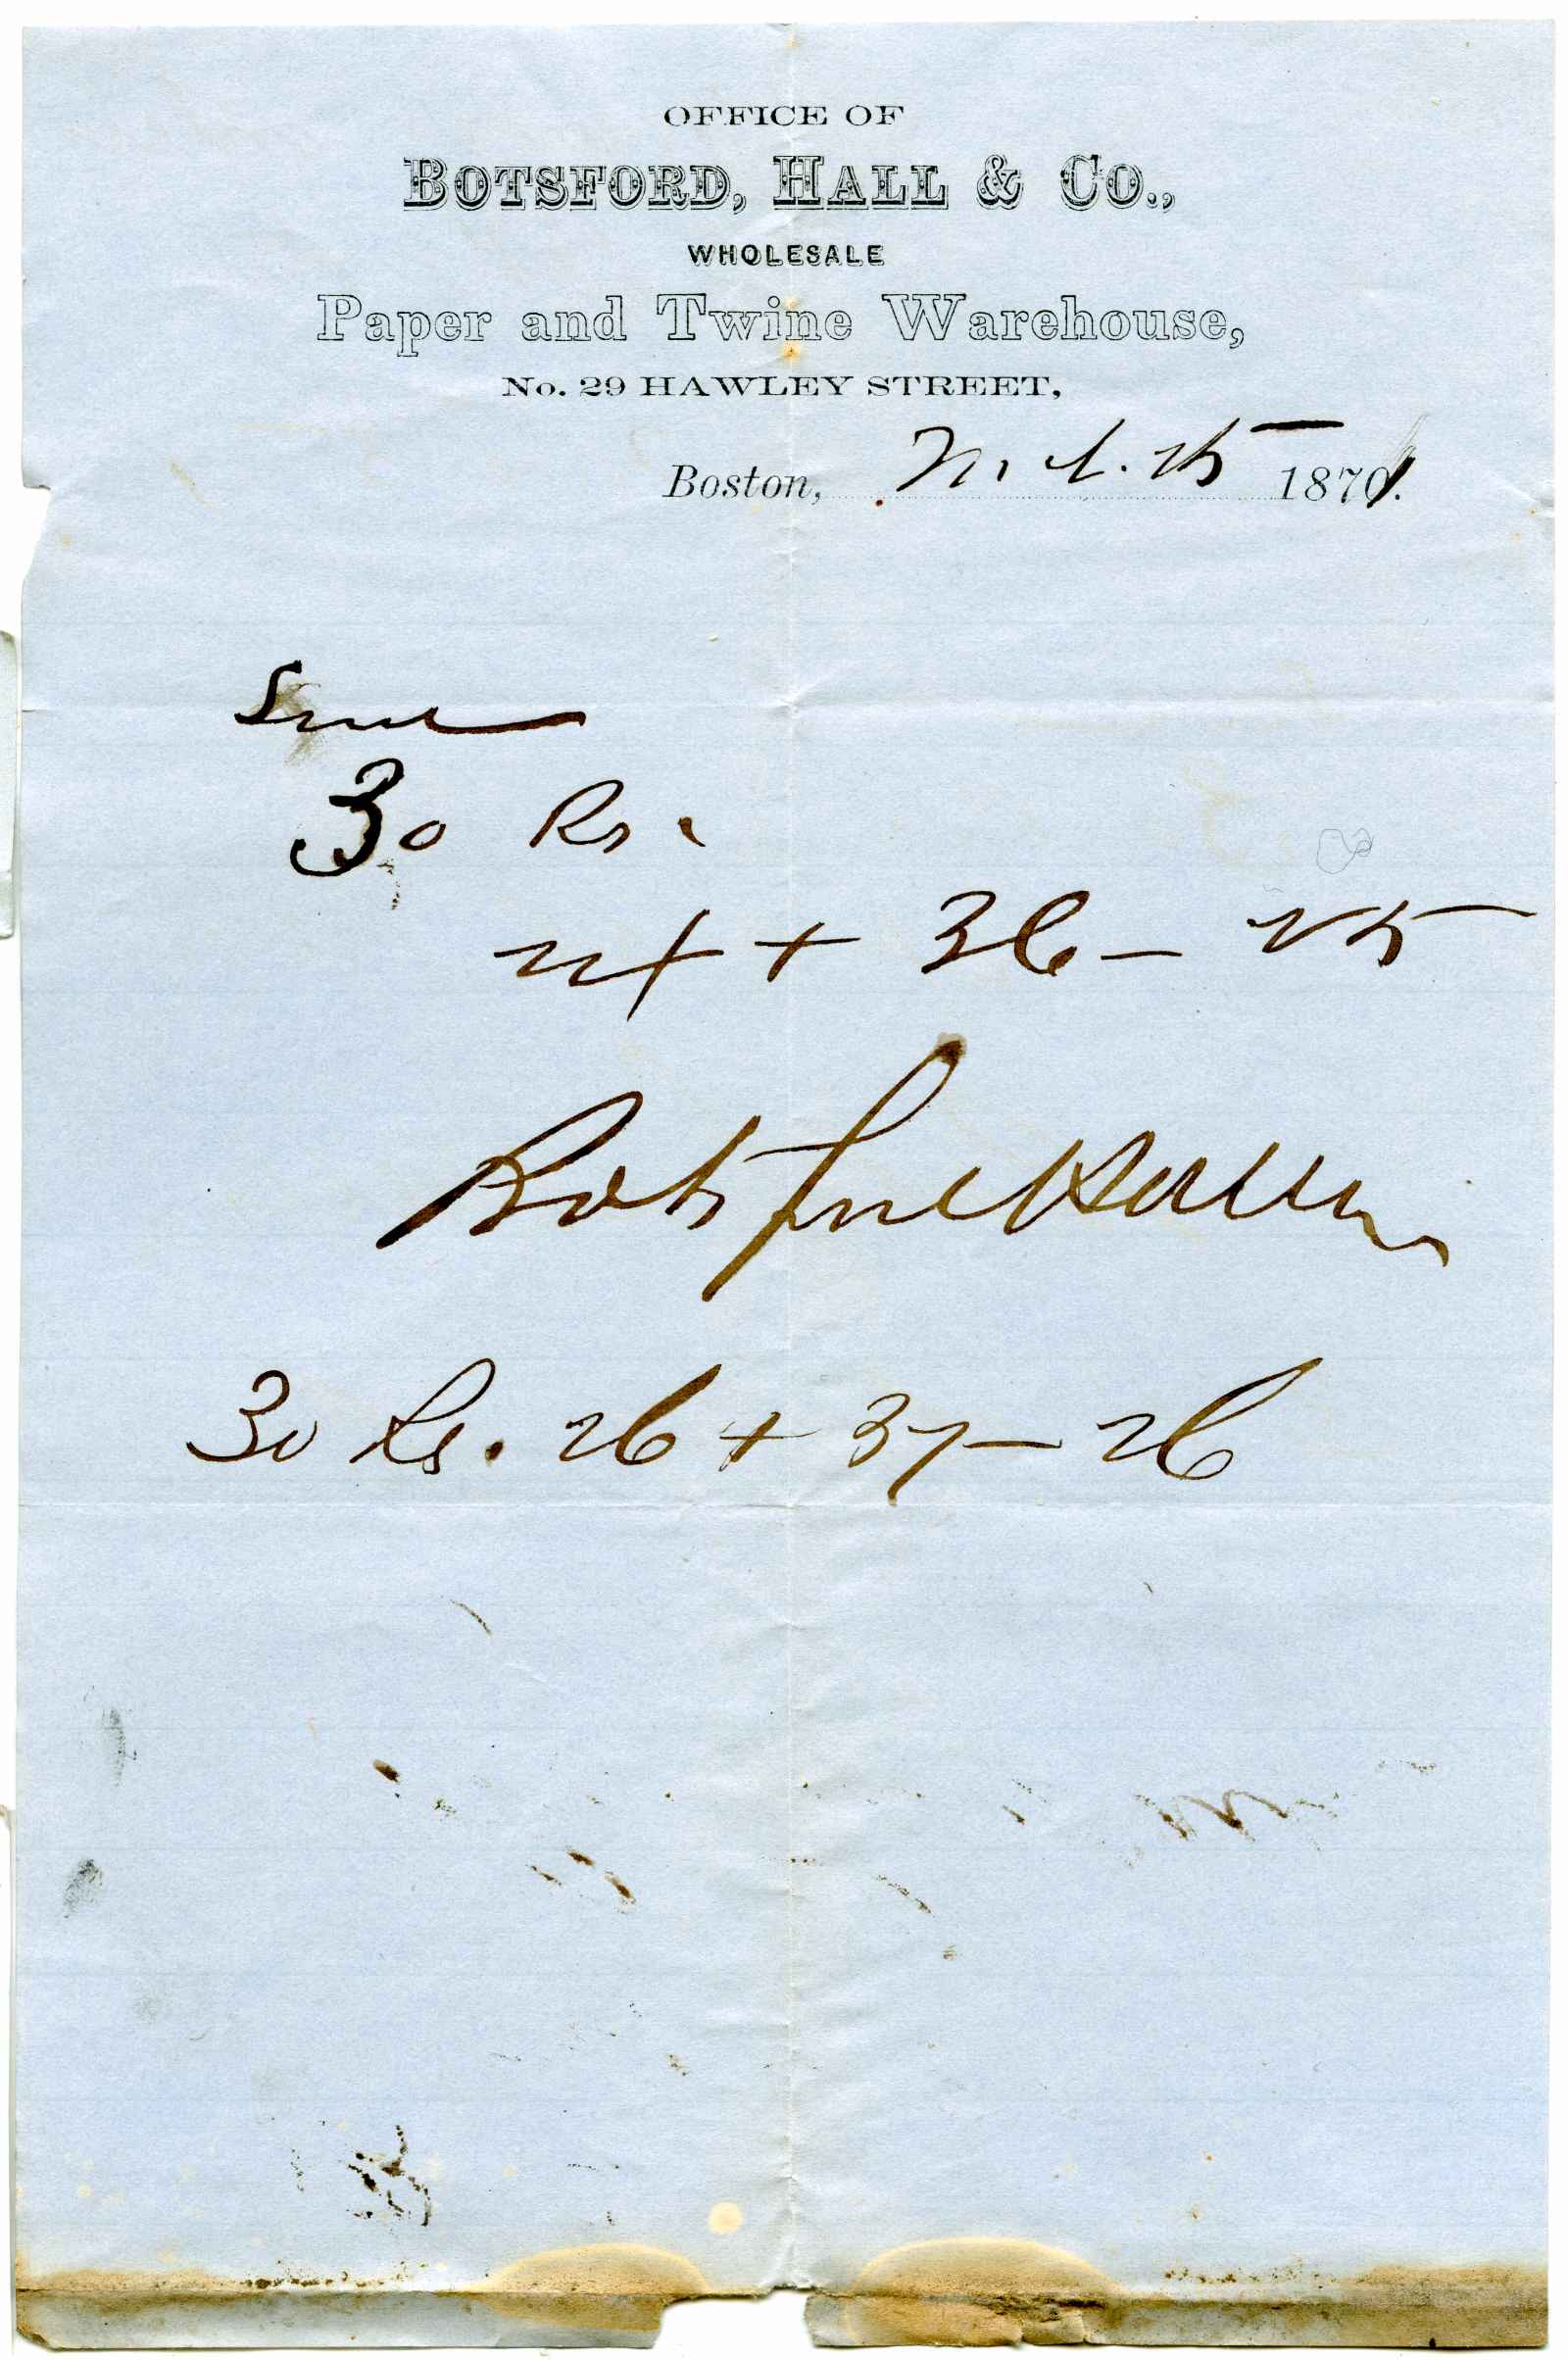 OFFICE OF
BOTSFORD, HALL & CO.,
WHOLESALE
Paper and Twine Warehouse,
No. 29 HAWLEY STREET,
Boston, 25 1871.
Send
30 Rs.
24 + 36 - 25
Botsford Hall
30 Rs. 26 + 37 - 26